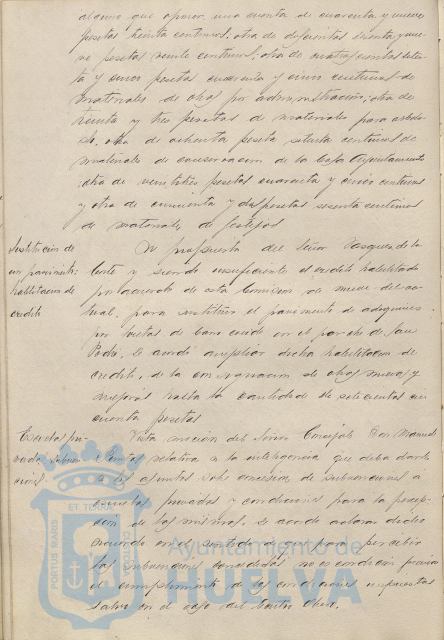 alguno que oponer, una cuenta de cuarenta y nueve
pesetas treinta centimos, otra de doscientas sesenta y nue-
ve pesetas veinte centimos, otra de cuatrocientas seten-
ta y cinco pesetas cuarenta y cinco centimos de
materiales de obras por administración; otra de
treinta y tres pesetas de materiales para arbola-
do, otra de ochenta pesetas setenta centimos de
material de conservacion de la Casa Ayuntamiento
otra de veintitres pesetas cuarenta y cinco centimos
y otra de cincuenta y dos pesetas sesenta centimos
de material de festejos
Sustitución de
un pavimento
habilitacion de
credito
A propuesta del Señor Vazquez de la
Corte y siendo insuficiente el credito habilitado
por acuerdo de esta Comision de nueve del ac-
tual, para sustituir el pavimento de adoquines
por losetas de barro cocido en el porche de San
Pedro, se acordó ampliar dicha habilitacion de
credito, de la consignacion de obras nuevas y
mejoras hasta la cantidad de setecientas cin-
cuenta pesetas
Escuelas pri-
vadas, subven-
ciones
Vista mocion del Señor Concejal Don Manuel
relativa a la inteligencia que deba darse
a los asuntos sobre concesion de subvenciones a
escuelas privadas y condiciones para la percep-
cion de las mismas, se acordó aclarar dicho
acuerdo en el sentido de que para percibir
las subvenciones concedidas no es condicion precisa
el cumplimiento de las condiciones impuestas
salvo en el caso del Centro Obrero.
PORTUS MARIS
ET TERRAE
Ayuntamiento de
HUELVA